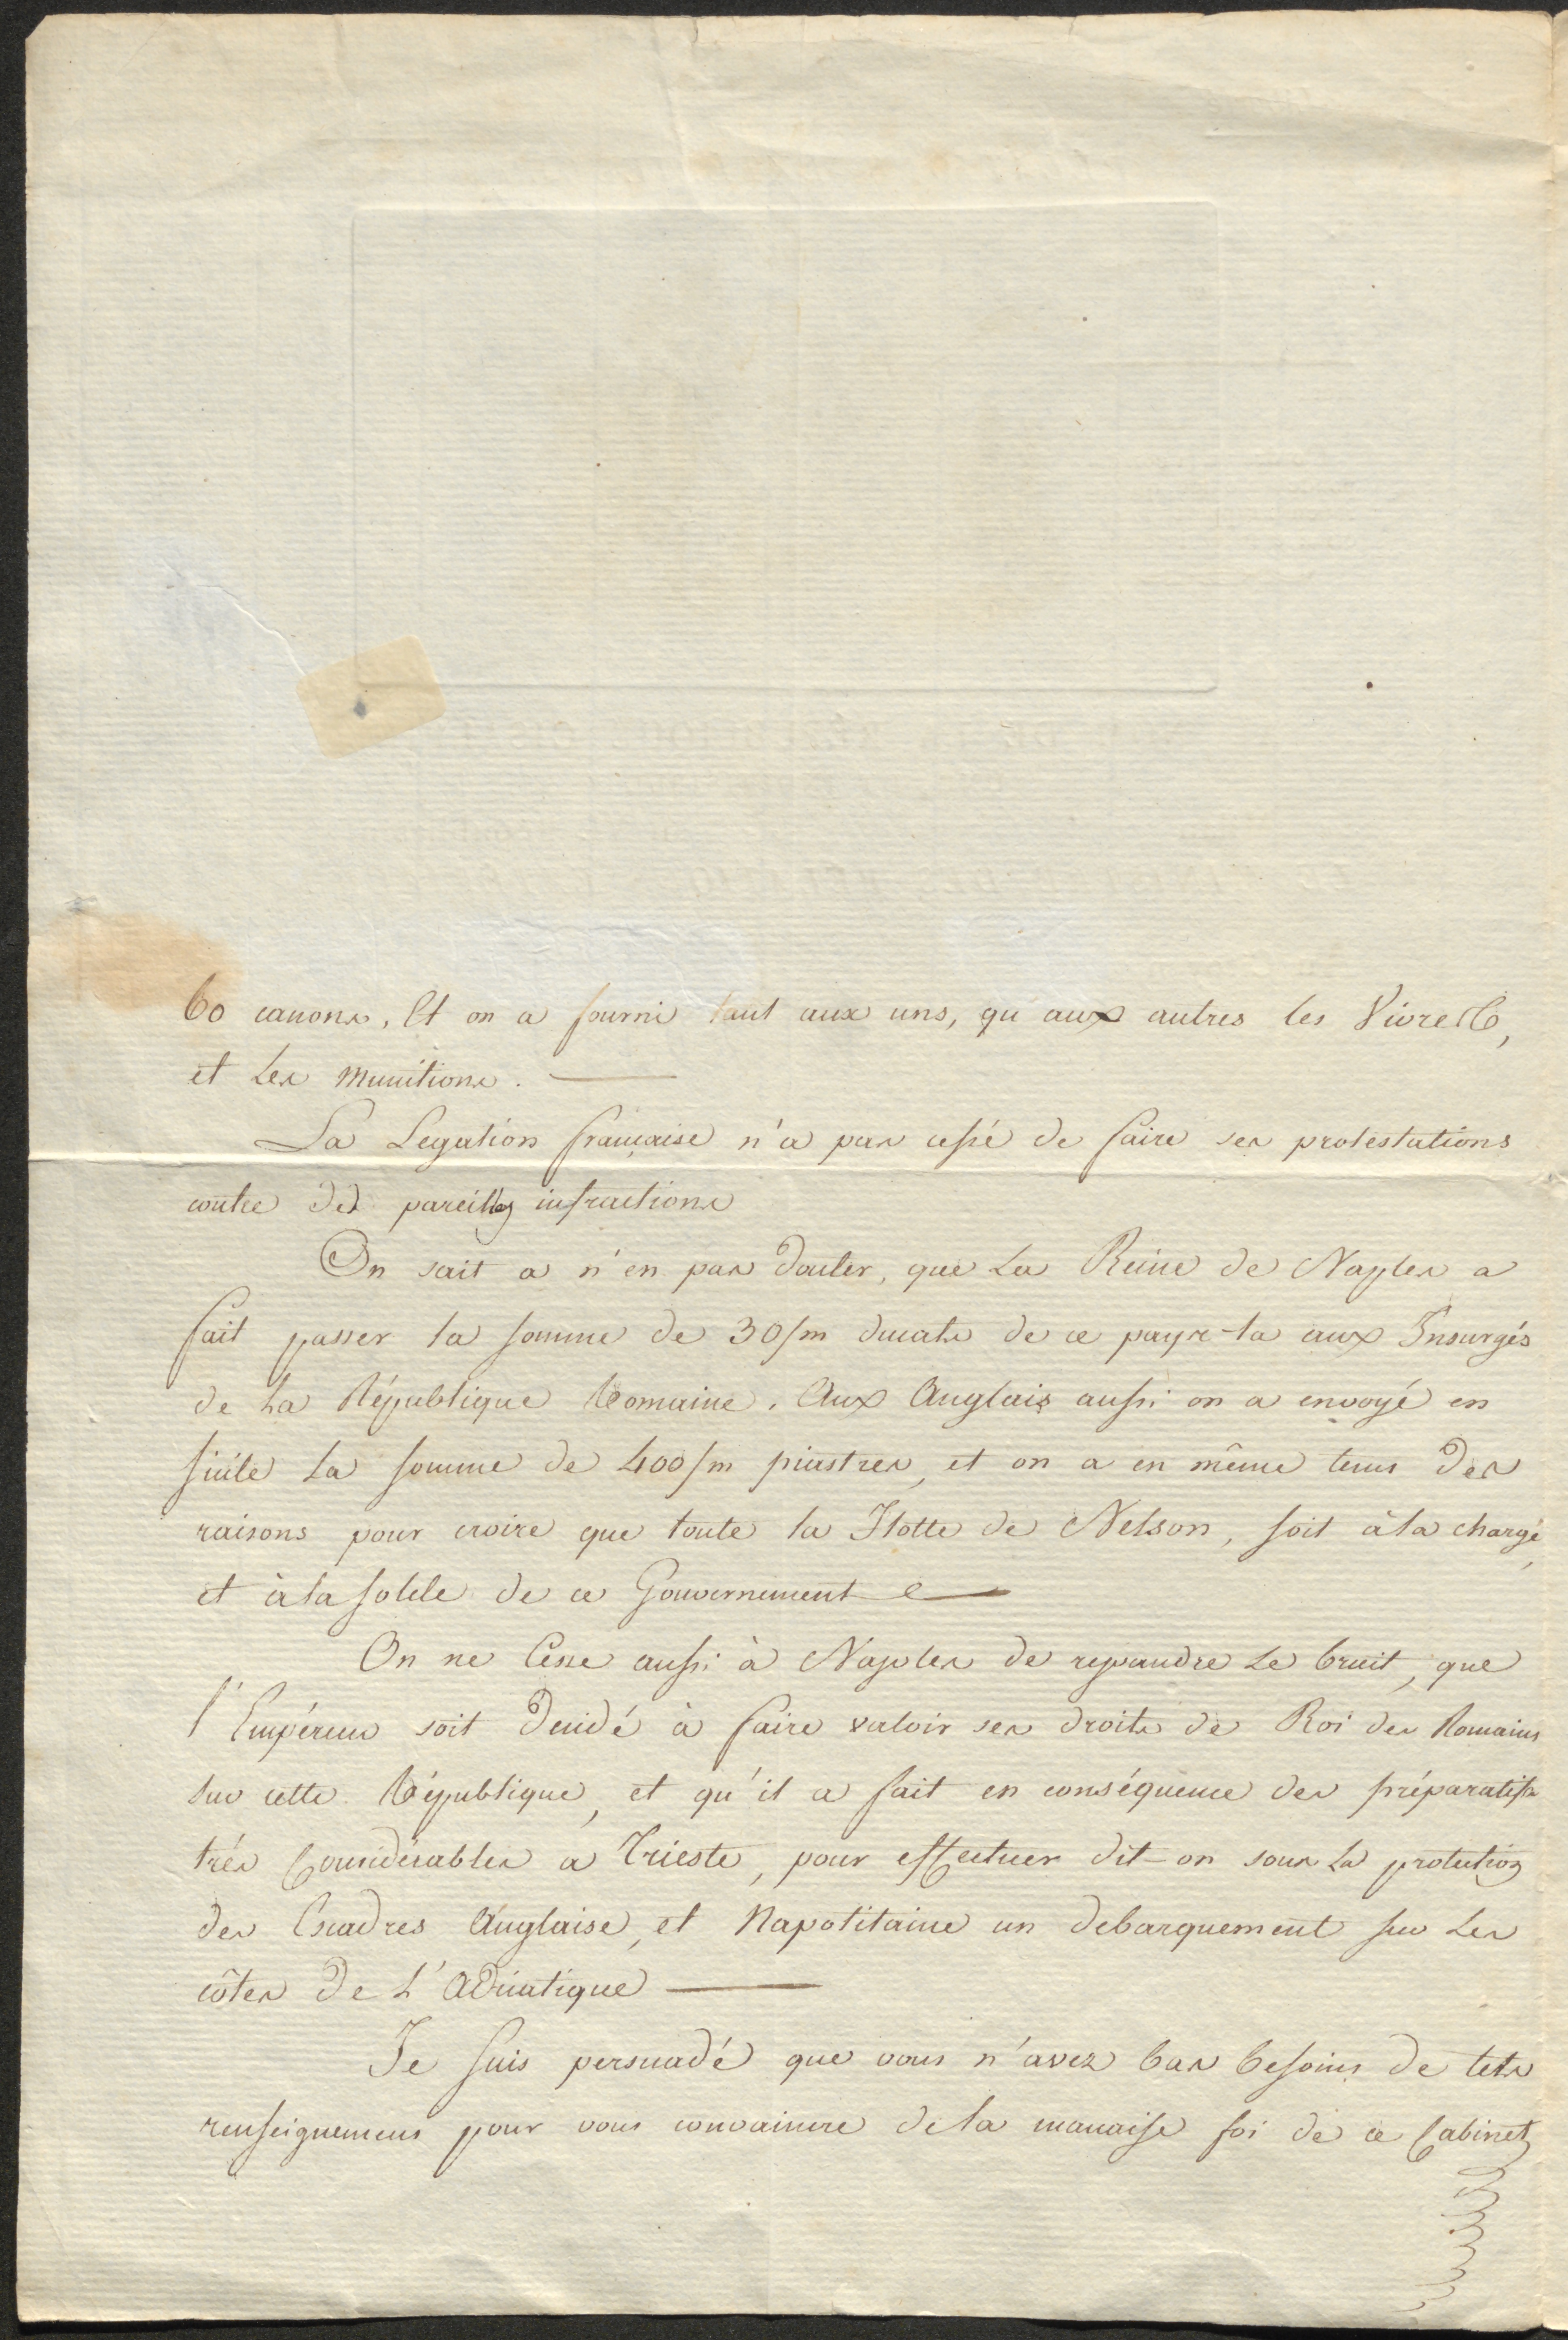 60 canons, Et on a fourni tant aux uns, qu aux autres les Vivres,
et les munitions. —
La Legation française n'a pas cessé de faire ses protestations
contre des pareilles infractions
On sait a n'en pas douter, que la Reine de Naples a
fait passer la somme de 30/m ducats de ce pays-la aux Insurgés
de la République Romaine. Aux Anglais aussi on a envoyé en
Sicile la somme de 400/m piastres, et on a en même tems des
raisons pour croire que toute la Flotte de Nelson, soit à la charge,
et à la solde de ce Gouvernement —
On ne Cesse aussi à Naples de repandre le bruit, que
l'Empéreur soit decidé à faire valoir ses droits de Roi des Romains
sur cette République, et qu'il a fait en conséquence des préparatifs
très Considérables a Trieste, pour effectuer dit-on sous la protection
des Escadres Anglaise, et Napolitaine un debarquement sur les
côtes de l'Adriatique —
Je suis persuadé que vous n'avez bas besoins de tels
renseignemens pour vous convaincre de la mauaise foi de ce Cabinet